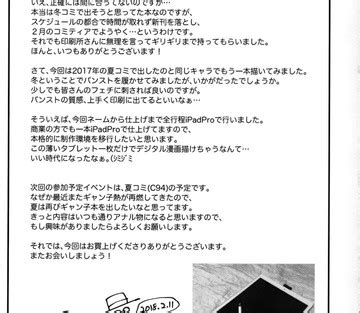 いえ、正確には間に合ってないのですが…
本当は冬コミで出そうと思ってた本なのですが、
スケジュールの都合で時間が取れず新刊を落とし、
２月のコミティアでようやく…というわけです。
それでも印刷所さんに無理を言ってギリギリまで待ってもらいました。
ほんと、いつもありがとうございます！
さて、今回は2017年の夏コミで出したのと同じキャラでもう一本描いてみました。
冬ということでパンストを履かせてみましたが、いかがだったでしょうか。
少しでも皆さんのフェチに刺されば良いのですが。
パンストの質感、上手く印刷に出てるといいなぁ…
そういえば、今回ネームから仕上げまで全行程iPadProで行いました。
商業の方でも一本iPadProで仕上げてますので、
本格的に制作環境を移行したいと思います。
この薄いタブレット一枚だけでデジタル漫画描けちゃうなんて…
いい時代になったなぁ。(ｼﾐｼﾞﾐ
次回の参加予定イベントは、夏コミ(C94)の予定です。
なぜか最近またギャン子熱が再燃してきたので、
夏は再びギャン子本を出したいなと思ってます。
きっと内容はいつも通りアナル物になると思いますので、
もし興味がありましたらよろしくお願いします。
それでは、今回はお買上げくださりありがとうございます。
またお会いしましょう！
2018.2.11